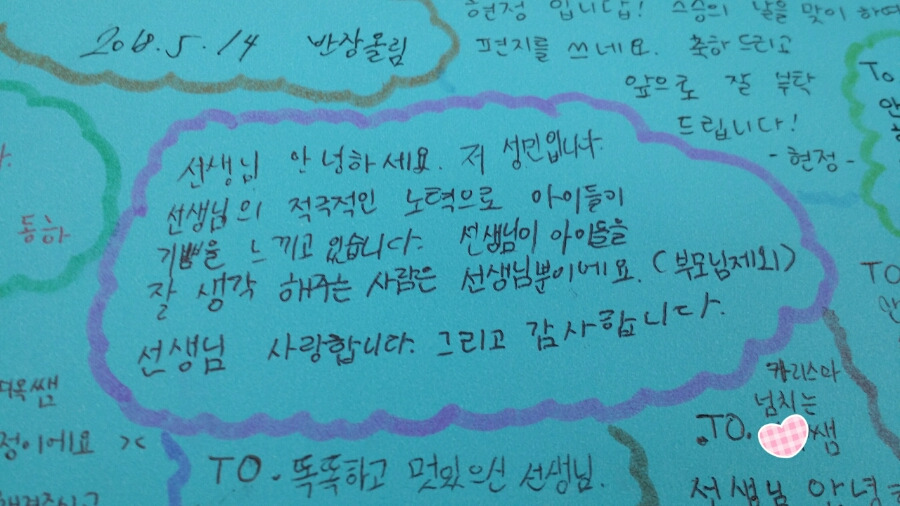 2018.5.14 반장올림
현정 입니다! 스승의 날을 맞이 하여
편지를 쓰네요. 축하 드리고
앞으로 잘 부탁
드립니다!
- 현정 -
선생님 안녕하세요. 저 성민입니다.
선생님의 적극적인 노력으로 아이들이
기쁨을 느끼고 있습니다. 선생님이 아이들을
잘 생각 해주는 사람은 선생님뿐이에요. (부모님제외)
선생님 사랑합니다. 그리고 감사합니다.
동하
To
TO
쌤
정이에요 ><
TO. 똑똑하고 멋있으신 선생님.
카리스마
넘치는
TO. 쌤
선생님 안녕